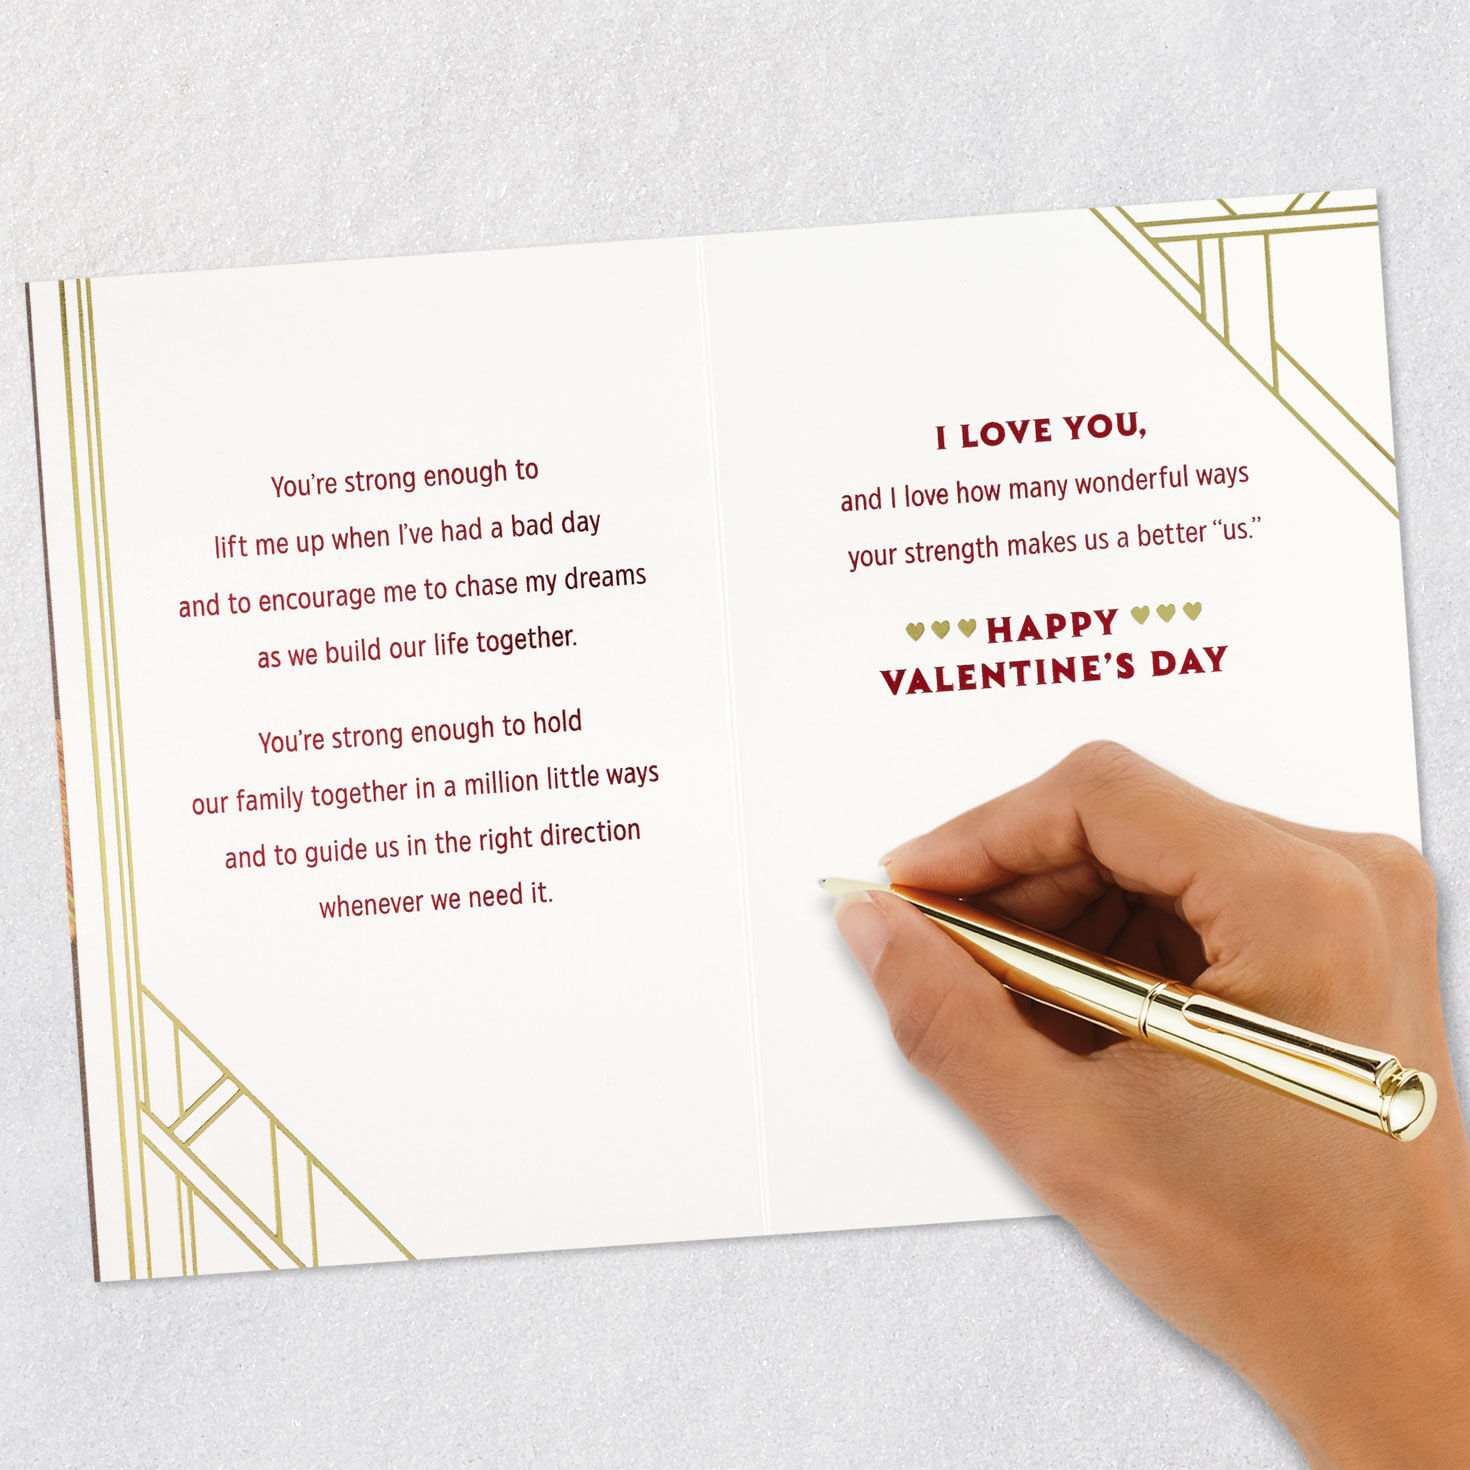 You're strong enough to
lift me up when I've had a bad day
and to encourage me to chase my dreams
as we build our life together.
You're strong enough to hold
our family together in a million little ways
and to guide us in the right direction
whenever we need it.
I LOVE YOU,
and I love how many wonderful ways
your strength makes us a better “us.”
HAPPY
VALENTINE'S DAY